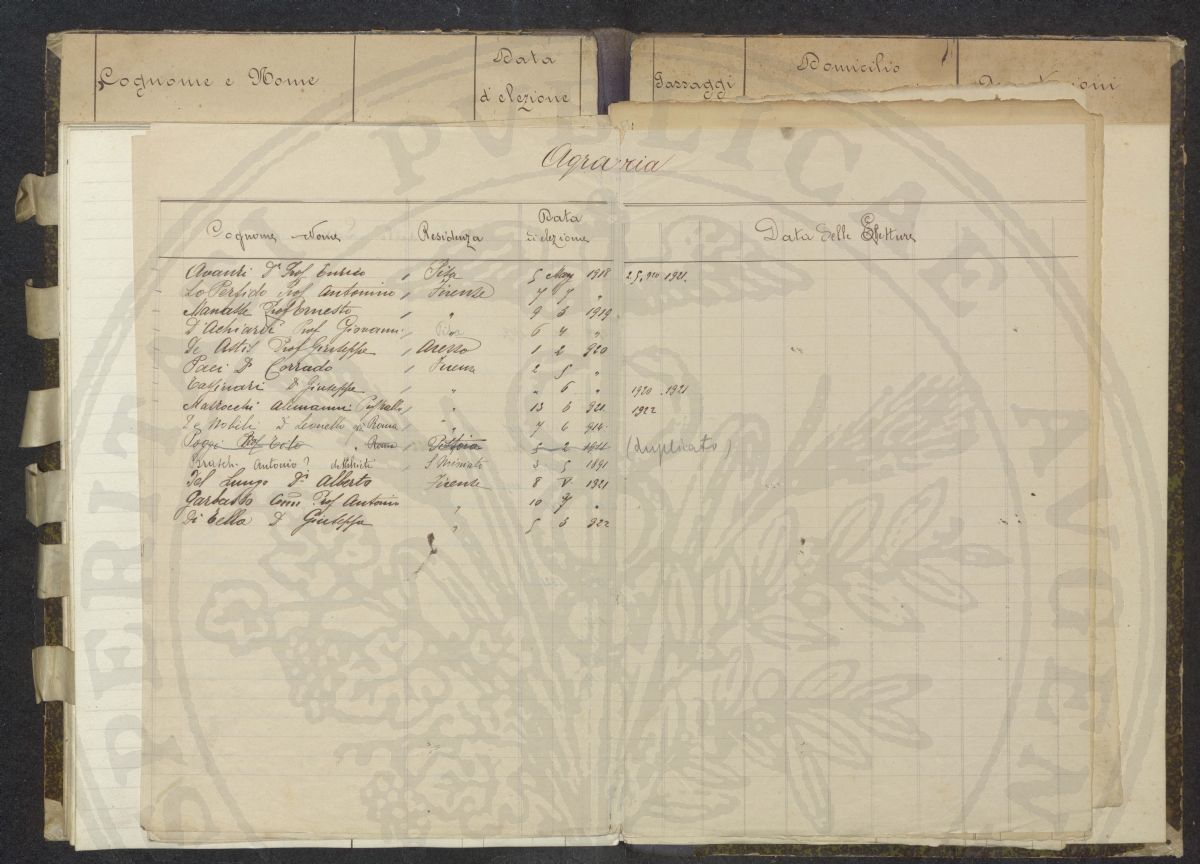 Cognome e Nome Data d'elezione Passaggi Domicilio
Agraria
Cognome Nome Residenza Data di elezione Data delle Letture
Avanzi Dr Prof Enrico , Pisa 5 Mag 1918 1921.
Lo Perfido Prof Antonino , Firenze 7 7 "
Manasse Prof Ernesto , " 9 3 1919
D'Achiardi Prof Giovanni , Pisa 6 4 "
De Astis Prof Giuseppe , Arezzo 1 2 920
Paci Dr Corrado , Firenze 2 5 "
Tassinari Dr Giuseppe , " " 6 " 1920 . 1921
Marrocchi Alemanni , " 13 3 921 1922
De Nobili Dr Leonello Roma , " 7 6 914
Poggi Prof Tito " Roma , Pistoia 5 2 (duplicato)
Braschi Antonio ? S. Miniato 3 5 1891
Del Lungo Dr Alberto Firenze 8 V 1921
Garbasso Comm Prof Antonio " 10 9 "
Di Tella Dr Giuseppe " 5 3 922
SPERITAT PUBLICAE AUGEN